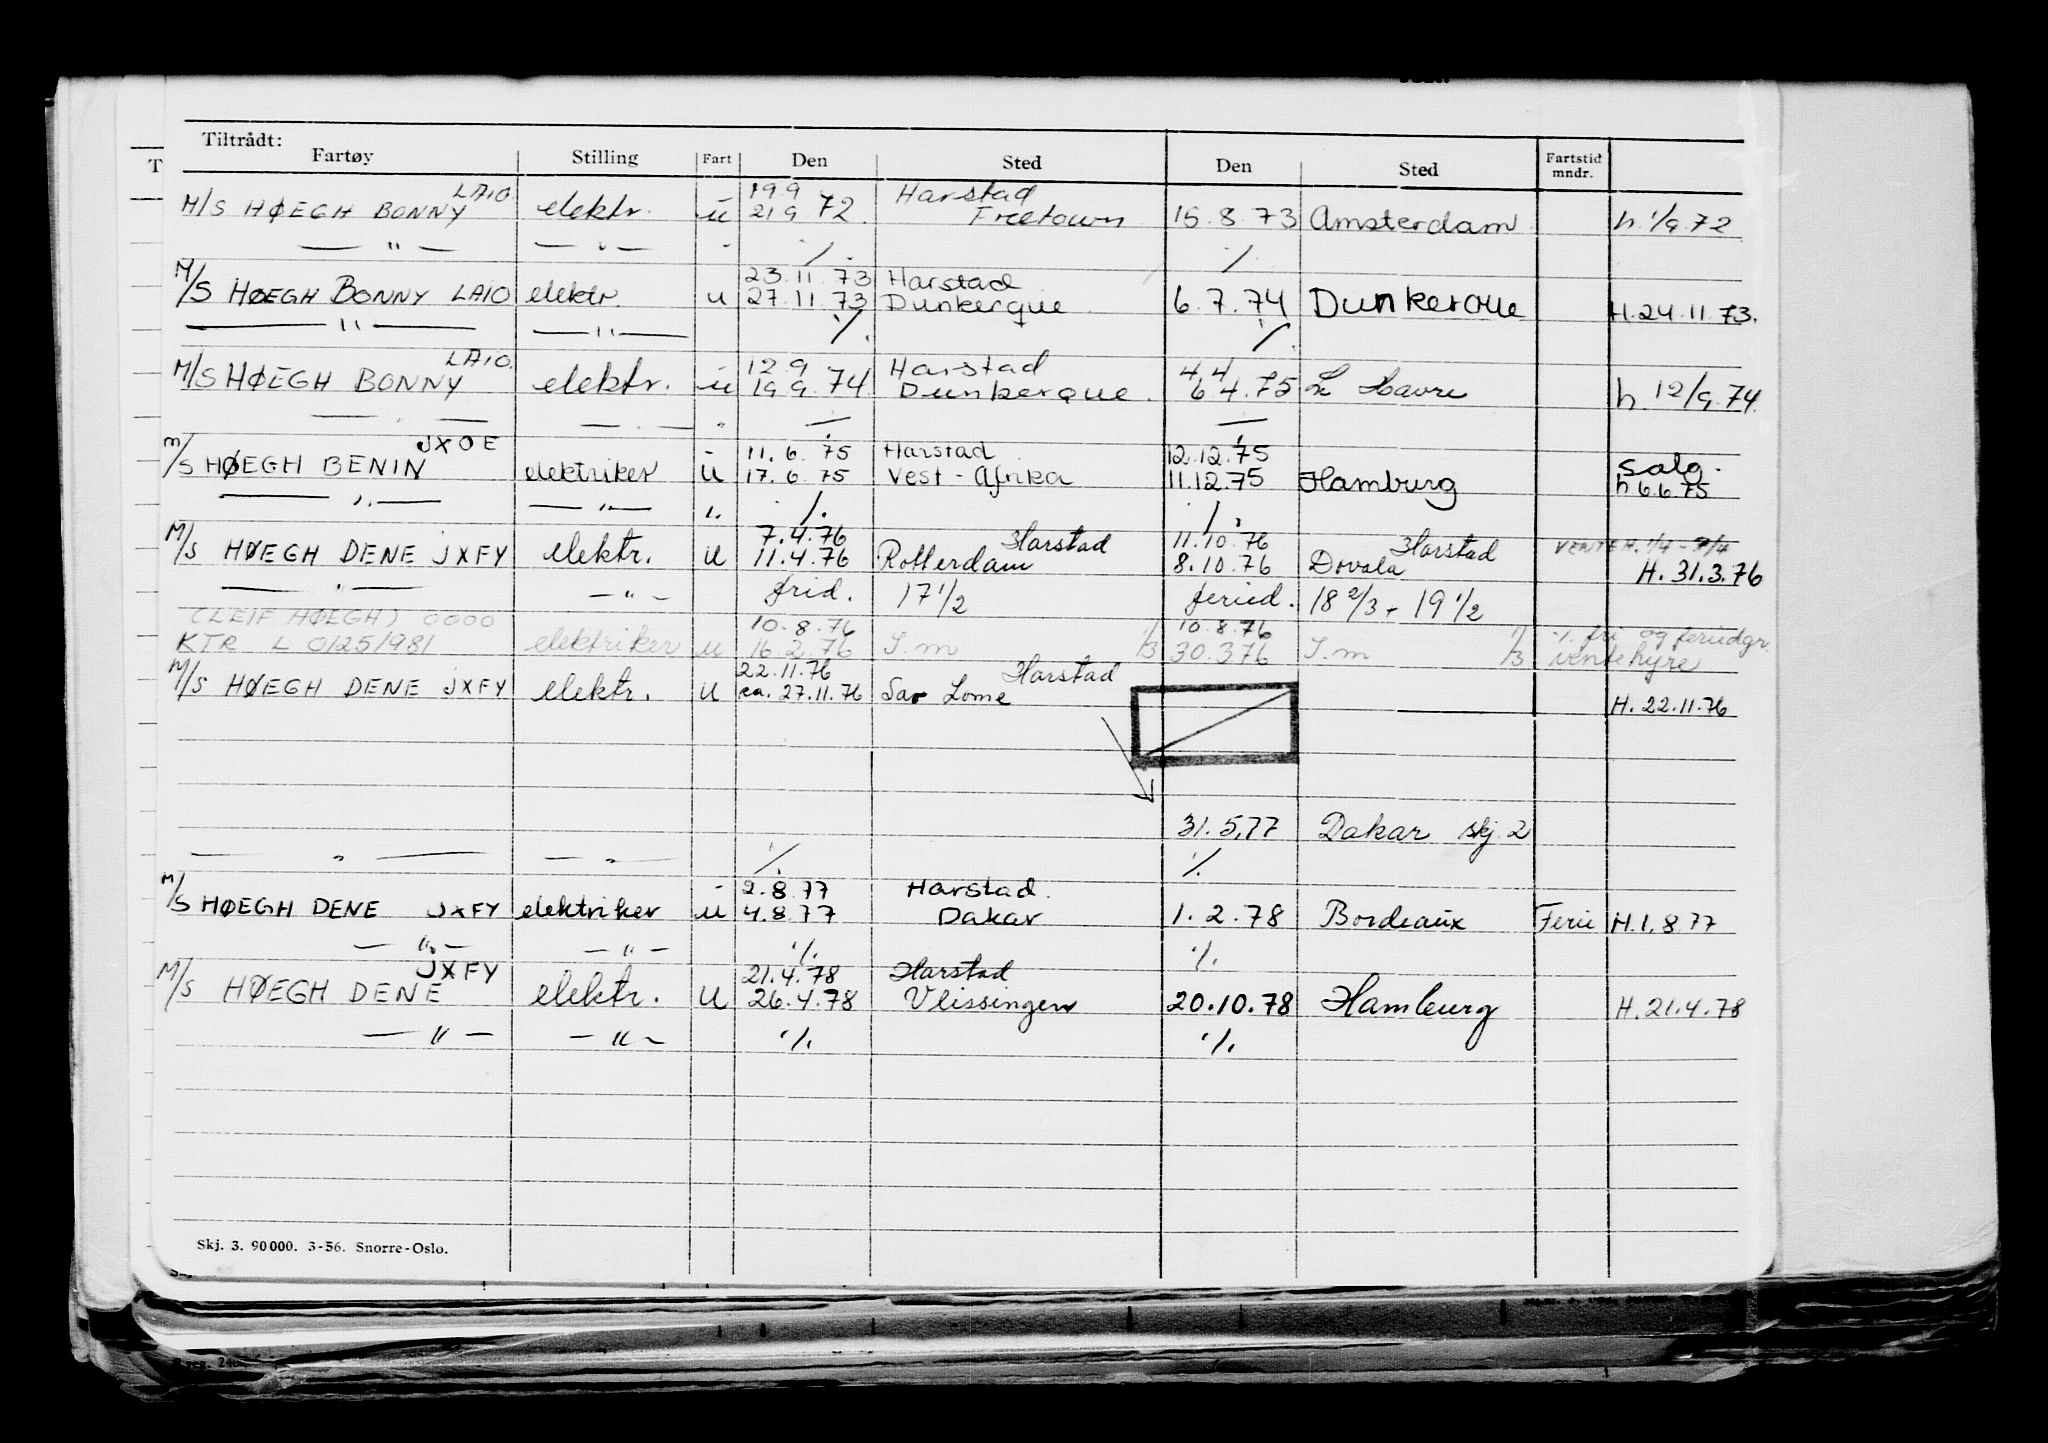 Tiltrådt:
Fartøy Stilling Fart Den Sted Den Sted Fartstid mndr.
LAIO 19.9 Harstad
M/S HØEGH BONNY elektr. u 21.9.72 Freetown 15.8.73 Amsterdam h. 1/9.72
— " — — " — - ./. ./.
23.11.73 Harstad
M/S HØEGH BONNY LAIO elektr. u 27.11.73 Dunkerque 6.7.74 Dunkerque H.24.11.73.
— " — — " — ./. ./.
LAIO 12.9 Harstad 4.4
M/S HØEGH BONNY elektr. u 19.9.74 Dunkerque. 6.4.75 Le Havre h. 12/9.74
— " — — " — "
JXOE - 11.6.75 Harstad 12.12.75 salg.
M/S HØEGH BENIN elektriker u 17.6.75 Vest-Afrika 11.12.75 Hamburg h 6.6.75
— " — — " — " ./. ./.
7.4.76 Harstad 11.10.76 Harstad VENTEH. 1/4 - 7/4
M/S HØEGH DENE JXFY elektr. u 11.4.76 Rotterdam 8.10.76 Dovala H. 31.3.76
— " — — " — frid. 17 1/2 feried. 18 2/3 + 19 1/2
(LEIF HØEGH) 0000 10.8.76 10.8.76 ./. fri og feriedgr.
KTR L 0125/981 elektriker u 16.2.76 I.m 1/3 30.3.76 I.m 1/3 ventehyre
22.11.76 Harstad
M/S HØEGH DENE JXFY elektr. u ca. 27.11.76 Sao Lome H. 22.11.76
31.5.77 Dakar skj. 2
— " — — " — ./. ./.
- 2.8.77 Harstad.
M/S HØEGH DENE JXFY elektriker u 4.8.77 Dakar 1.2.78 Bordeaux Ferie H.1.8.77
— " — — " — ./. ./.
JXFY 21.4.78 Harstad
M/S HØEGH DENE elektr. u 26.4.78 Vlissingen 20.10.78 Hamburg H.21.4.78
— " — — " — ./. ./.
Skj. 3. 90000. 3-56. Snorre-Oslo.